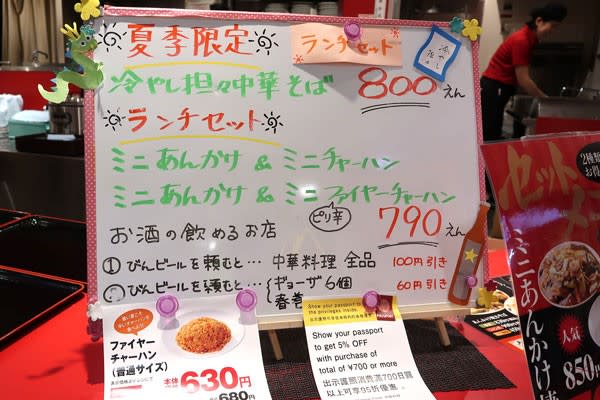 夏季限定
ランチセット
冷やし担々
冷やし担々中華そば 800えん
ランチセット
ミニあんかけ & ミニチャーハン
ミニあんかけ & ミニファイヤーチャーハン
ピリ辛
790えん
お酒の飲めるお店
① びんビールを頼むと… 中華料理 全品 100円引き
② びんビールを頼むと… ギョーザ6個 60円引き
春巻
ファイヤー
チャーハン
(普通サイズ)
本体 630円
680円
Show your passport to
the privileges inside.
Show your passport
to get 5% OFF
with purchase of
total of ¥700 or more
出示護照消費滿700日買
以上可享95折優惠。
2種類
お得
セット
メ
ミニあんかけ焼
人気
850円